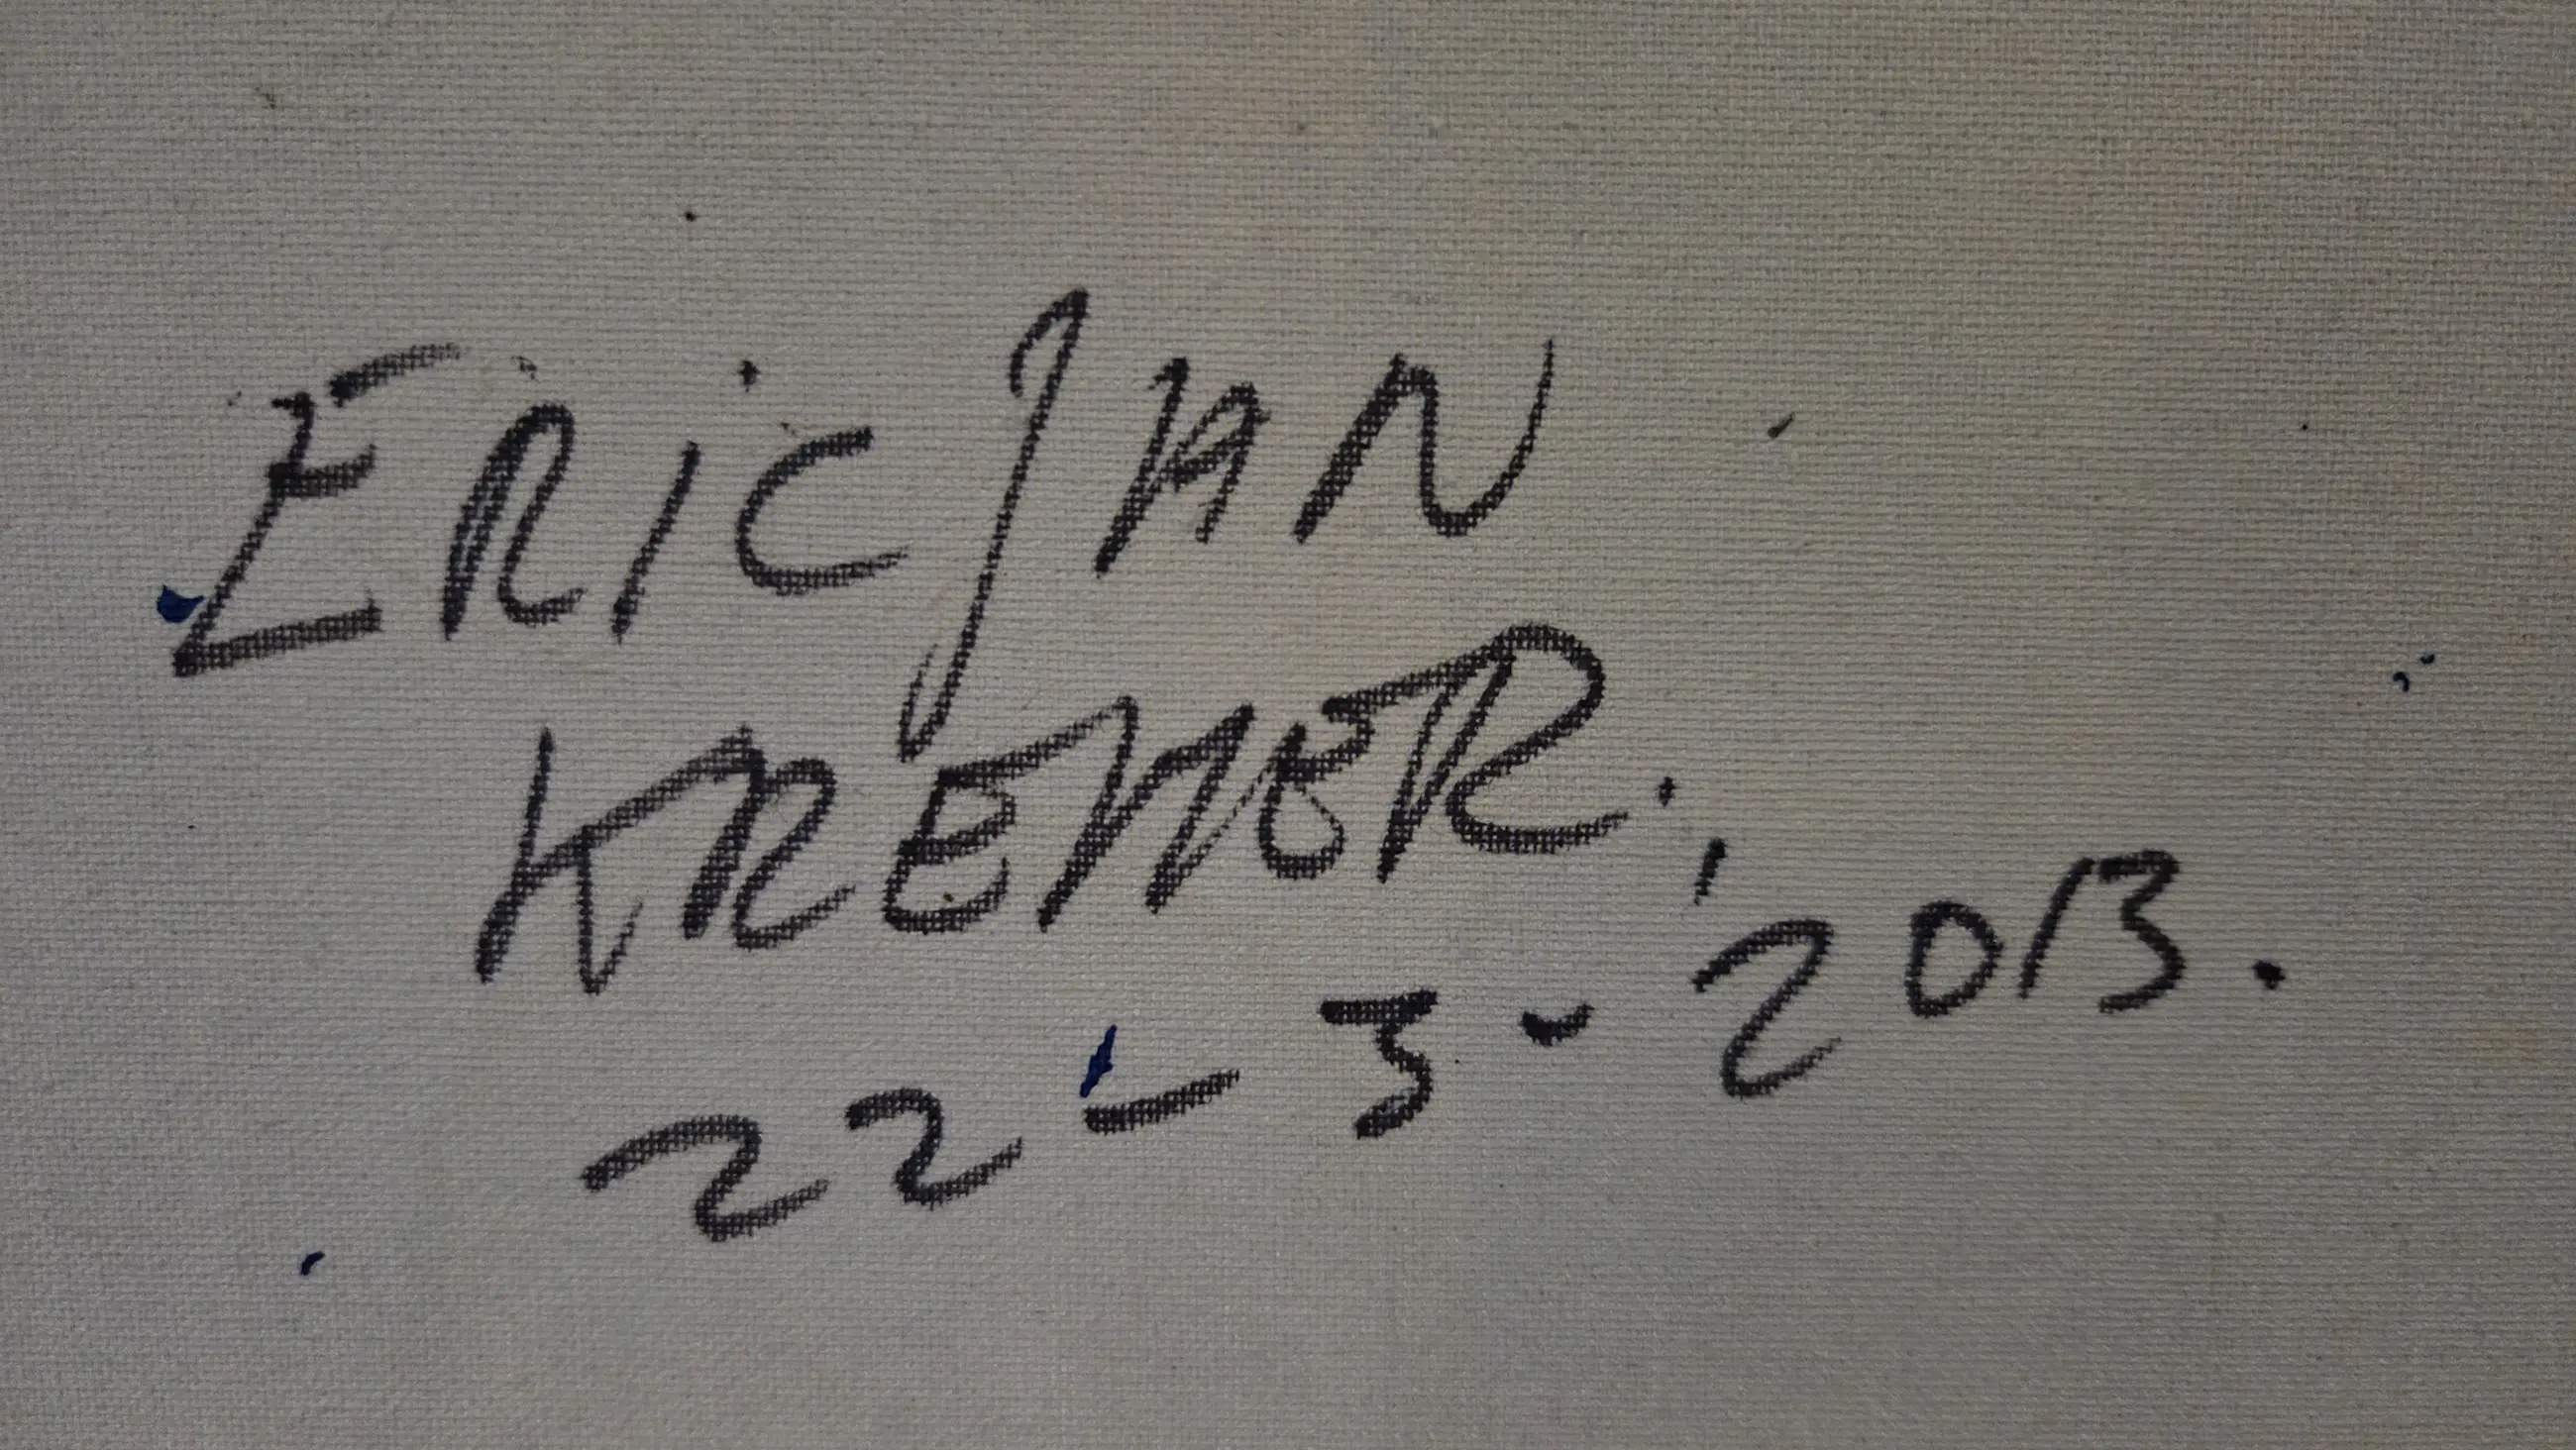 ERIC JAN
KREMER.
22 - 3 - 2013.